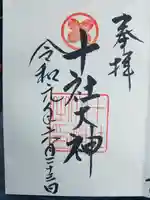 奉拝
十社大神
令和元年六月二十三日